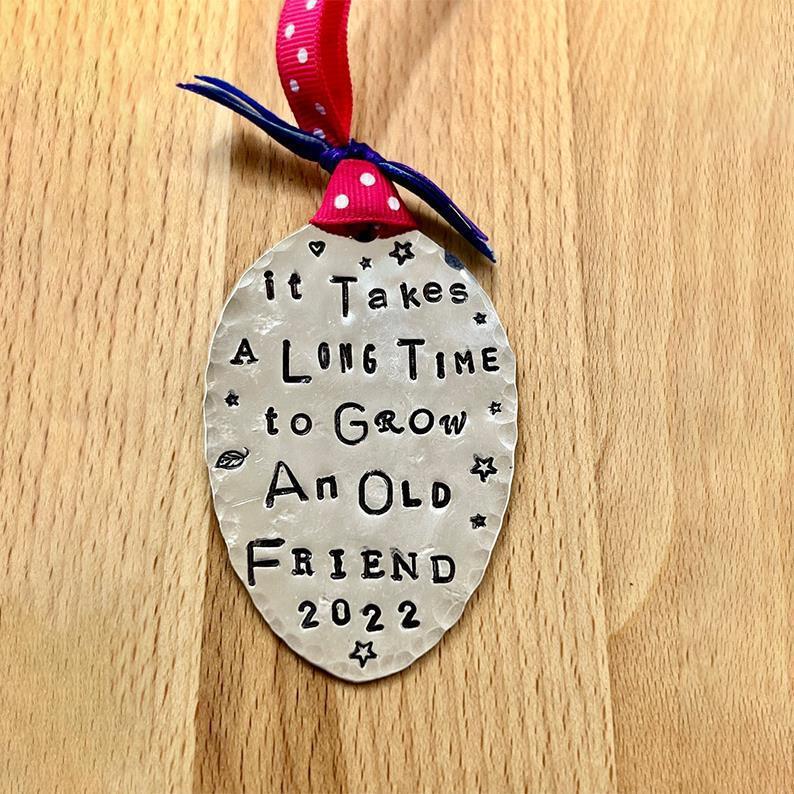 it Takes
A LONG TIME
to GROW
An OLD
FRIEND
2022